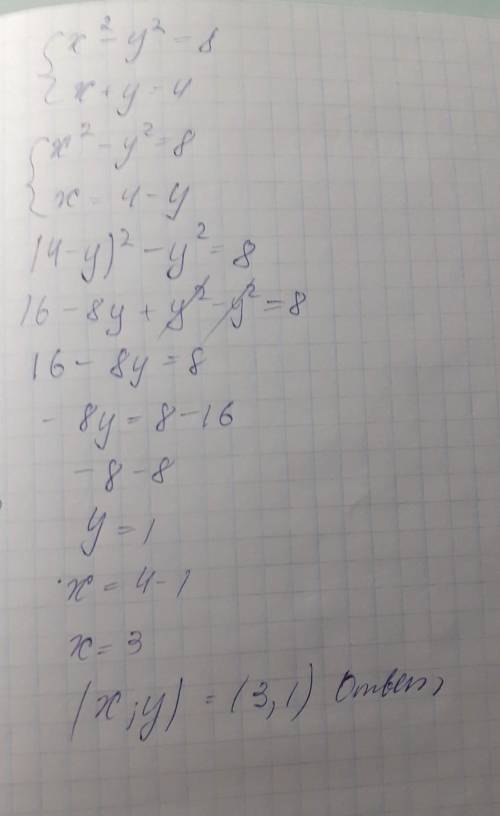 x² - y² = 8
x + y = 4
x² - y² = 8
x = 4 - y
(4-y)² - y² = 8
16 - 8y + y² - y² = 8
16 - 8y = 8
- 8y = 8 - 16
- 8 - 8
y = 1
x = 4 - 1
x = 3
(x; y) = (3,1) Ответ,